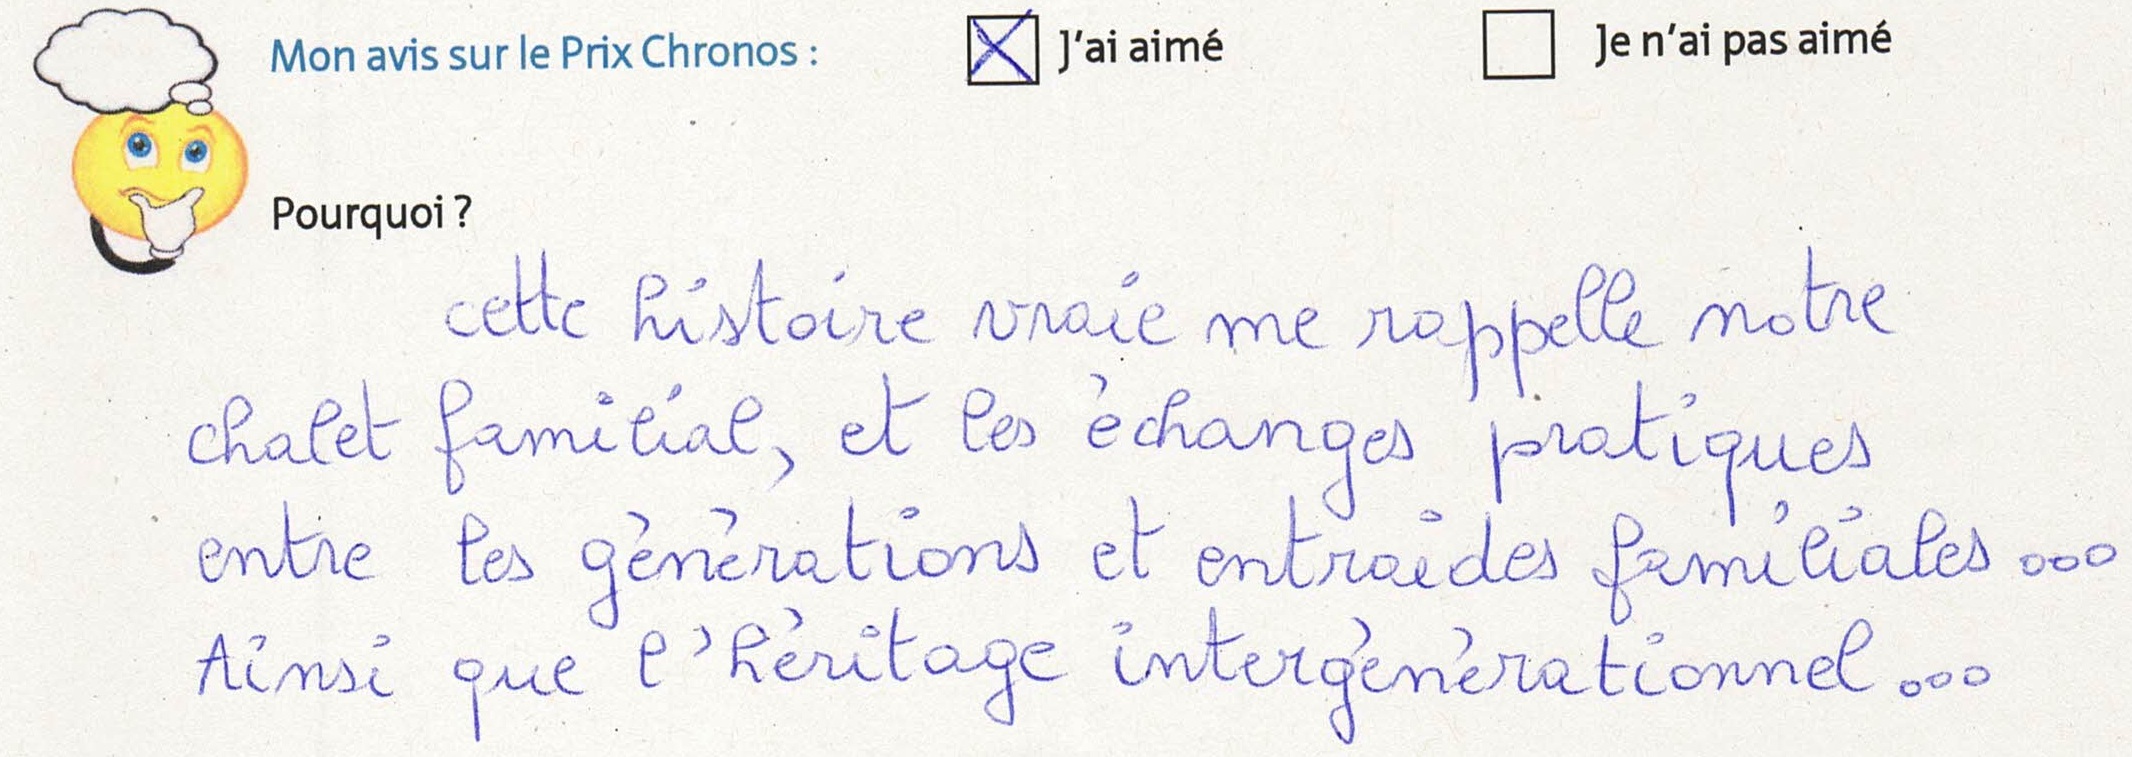 Mon avis sur le Prix Chronos : J'ai aimé Je n'ai pas aimé
Pourquoi ?
cette histoire vraie me rappelle notre
chalet familial, et les échanges pratiques
entre les générations et entraides familiales...
Ainsi que l'héritage intergénérationnel...